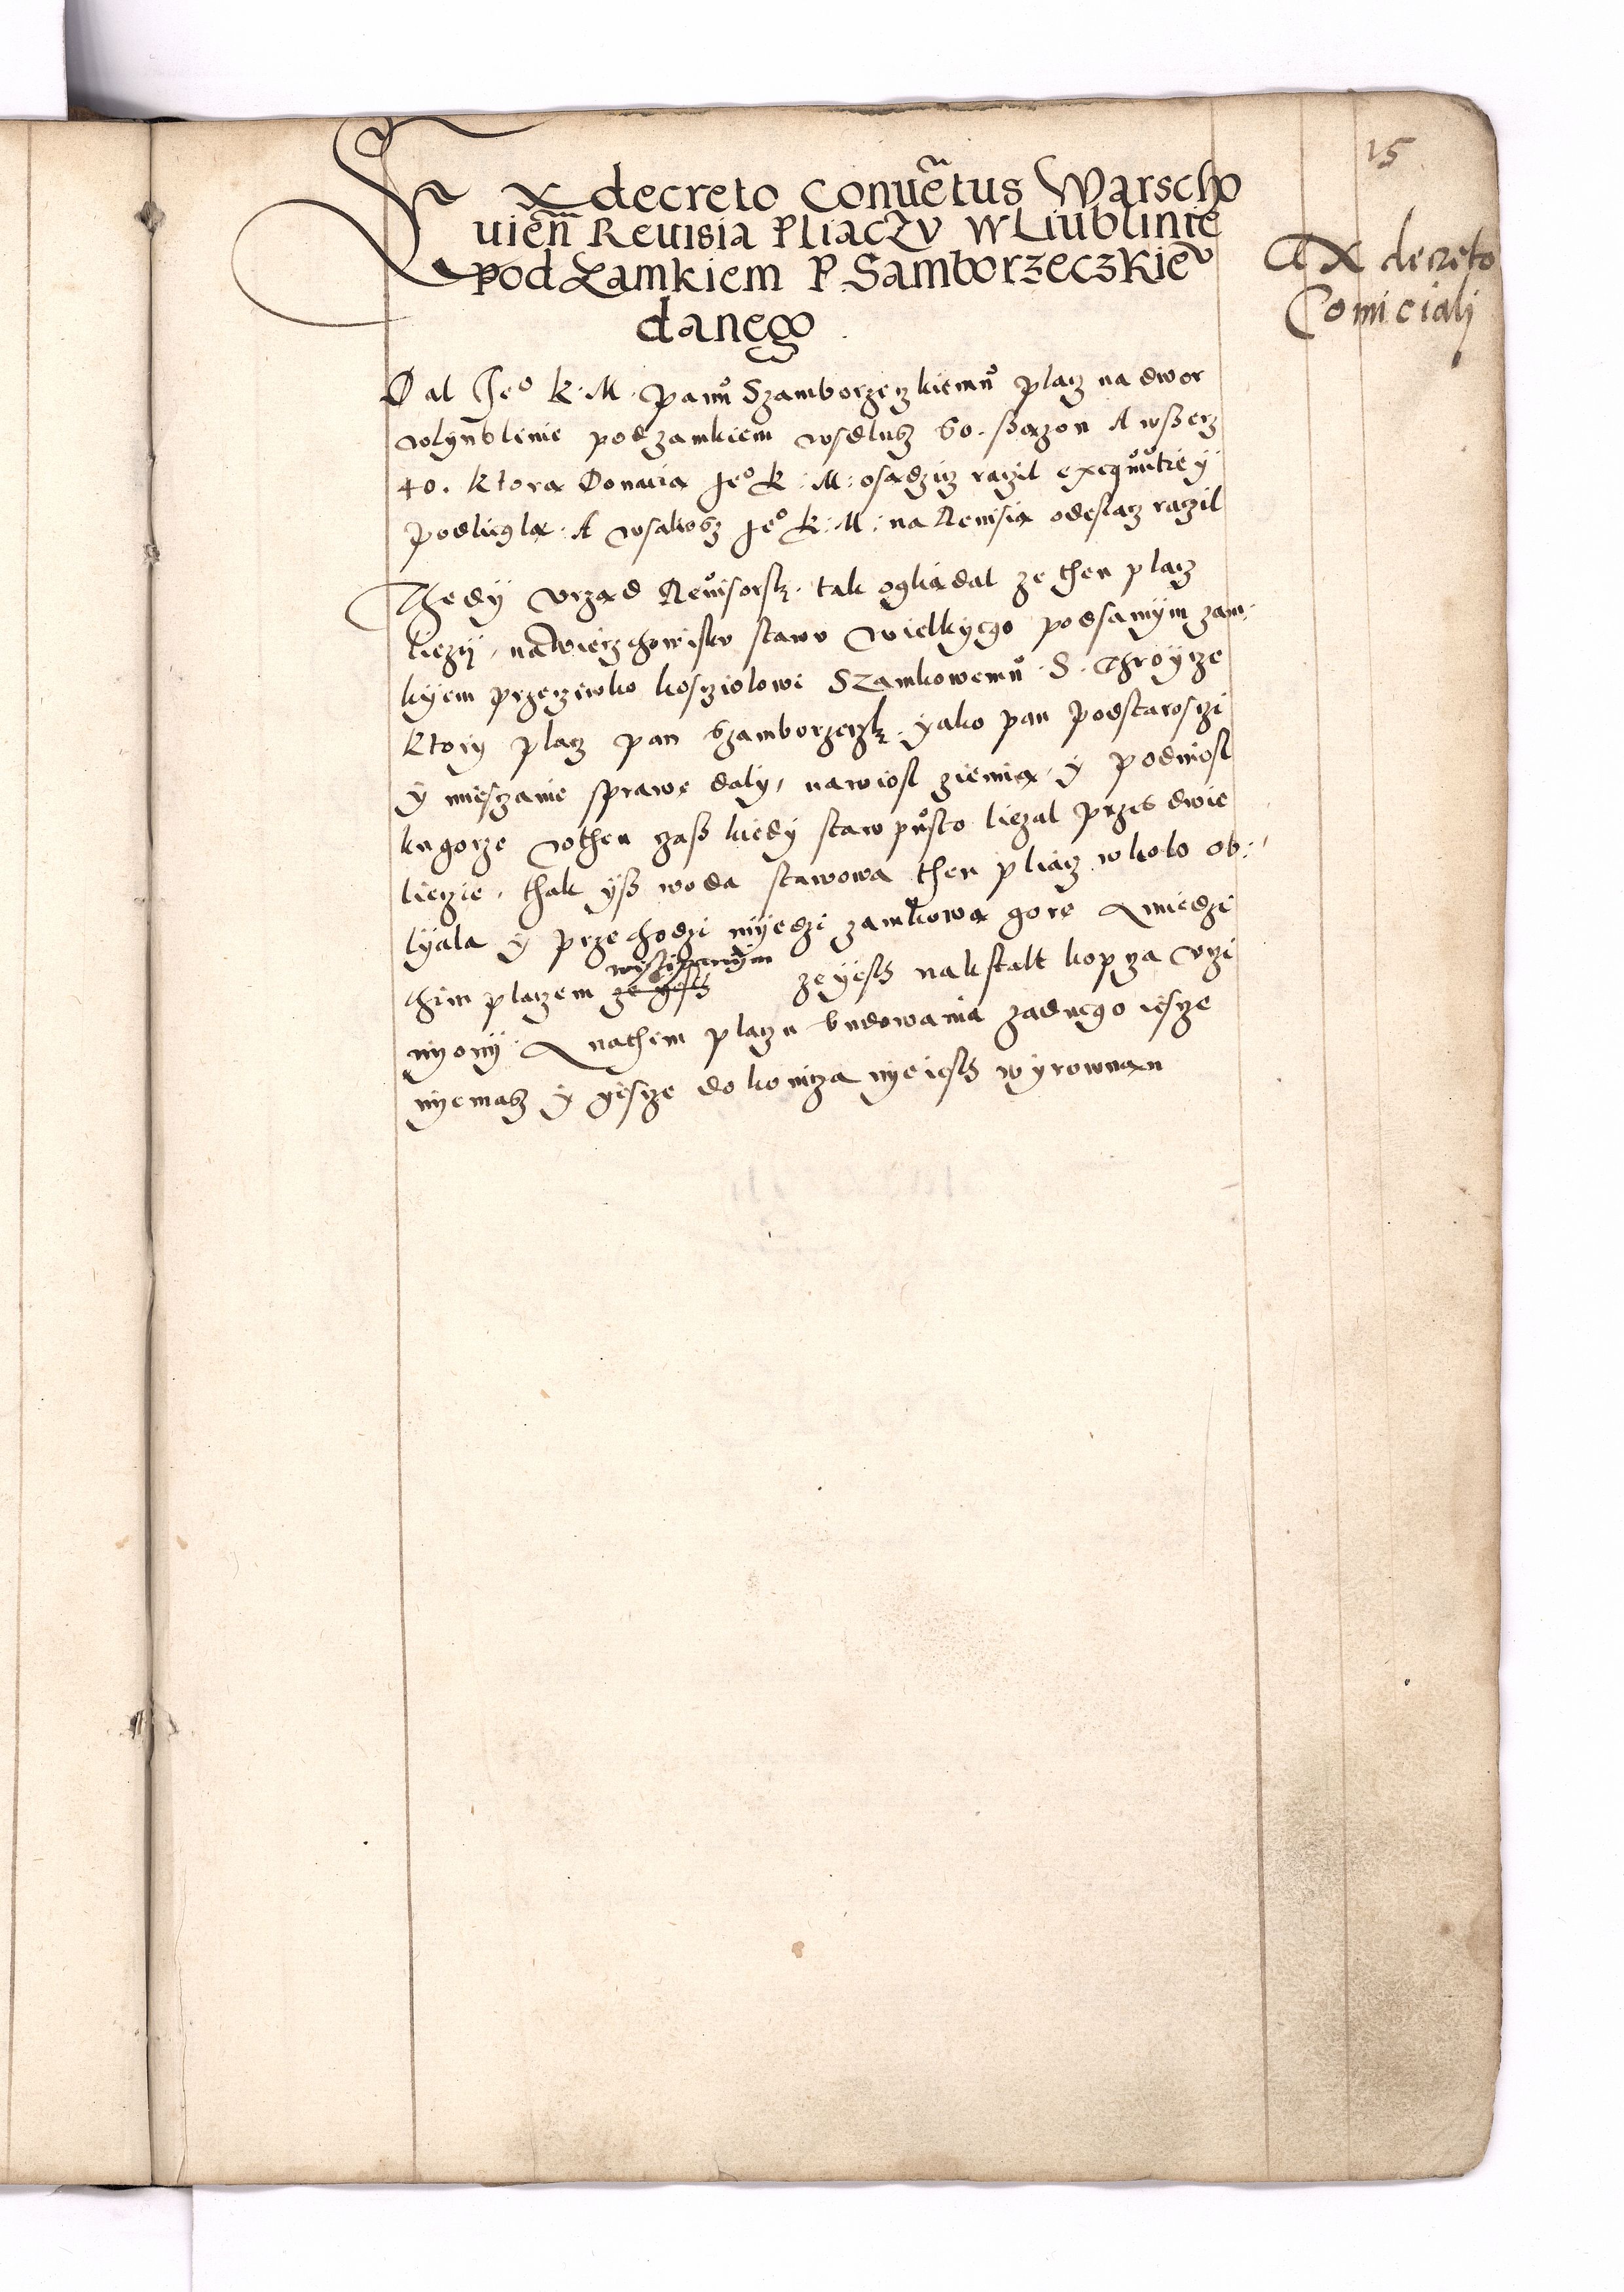 15
Ex decreto Conuẽtus Warscho
uień Reuisia PliacZv W Liublinie
pod Zamkiem P. Samborzeczkieº
danego
Ex decreto
Comiciali
Dal Jeº K. M. panů Szamborzeczkiemů placz na dwor
wlyublinie pod zamkiem wsdlusz 60. sążon A wszerz
40. ktora Donacia Jeº K: M: osądzicz raczil exequůtiey
podlieglą. A wsakosz Jeº K: M: na Revisią odeslacz raczil
Thedÿ vrząd Reůisorsk. tak oglądal ze then placz
liezÿ, na wierzchowisku stawu wielkyego pod samÿm zam-
kyem przecziwko kosziolowi Szamkowemů S. Throÿcze
ktorÿ placz pan Szamborzeczk. ÿako pan podstaroszi
ÿ miesczanie sprawe dalÿ, nawiosl ziemią, ÿ podniosl
kugorze wthen czasz kiedÿ staw půsto liezal przes dwie
liecie, thak ÿsz woda stawowa then pliacz wkolo ob-
lÿala ÿ przechodzi mÿedzi zamkową gore A miedzi
thim placzem ze ÿesth zeÿesth naksztalt kopcza vczi
nÿonÿ. A nathim placzu budowania zadnego iescze
nÿemasz ÿ ÿescze do koncza nÿeiesth wÿrownan